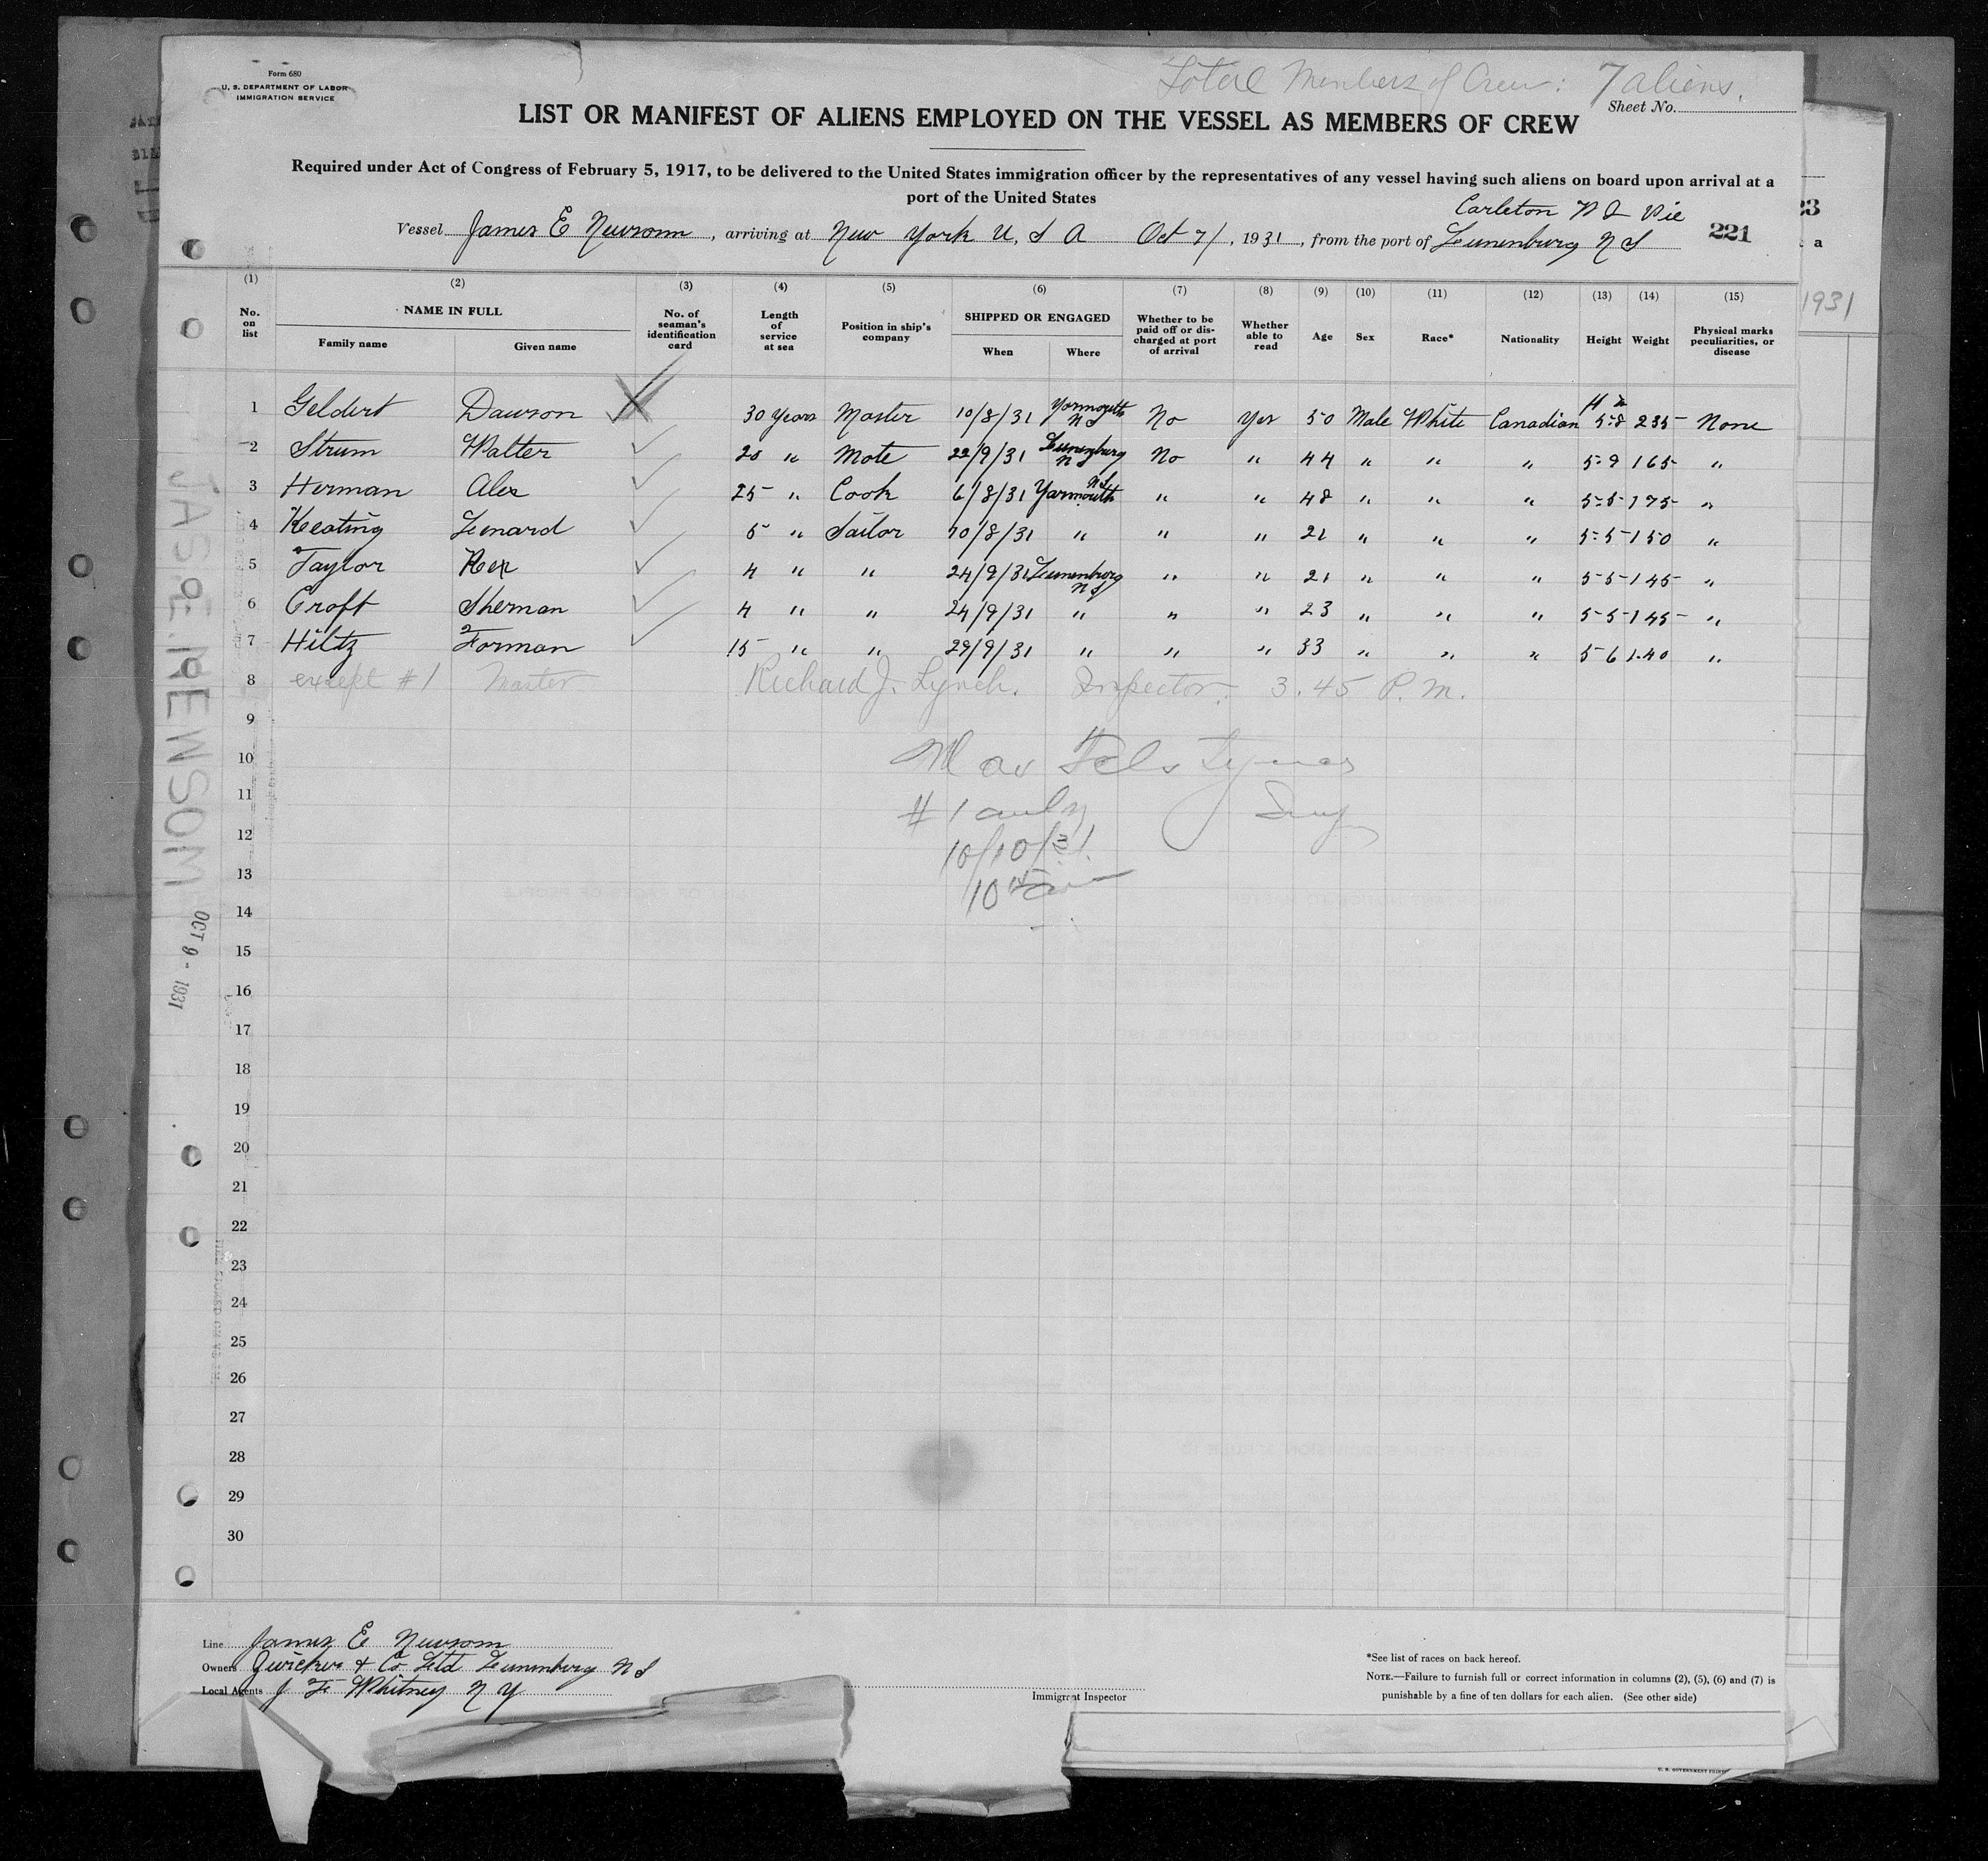 Total Members of Crew: 7 aliens.
Form 680
U. S. DEPARTMENT OF LABOR
IMMIGRATION SERVICE
Sheet No.
LIST OR MANIFEST OF ALIENS EMPLOYED ON THE VESSEL AS MEMBERS OF CREW
Required under Act of Congress of February 5, 1917, to be delivered to the United States immigration officer by the representatives of any vessel having such aliens on board upon arrival at a
port of the United States
Carleton
Vessel James E Newsom, arriving at New York U, S A Oct 7/, 1931, from the port of Lunenburg N S 221
23
a
1931
(1) (2) (3) (4) (5) (6) (7) (8) (9) (10) (11) (12) (13) (14) (15)
No. on list NAME IN FULL Family name Given name No. of seaman's identification card Length of service at sea Position in ship's company SHIPPED OR ENGAGED When Where Whether to be paid off or discharged at port of arrival Whether able to read Age Sex Race* Nationality Height Weight Physical marks peculiarities, or disease
1 Geldert Dawson 30 years Master 10/8/31 Yarmouth N S No Yes 50 Male White Canadian 5-8 235 None
2 Strum Walter 20 " Mate 22/9/31 Lunenburg N S No " 44 " " " 5-9 165 "
3 Herman Alex 25 " Cook 6/8/31 Yarmouth N S " " 48 " " " 5-5 175 "
4 Keating Lenard 5 " Sailor 10/8/31 " " " 21 " " " 5-5 150 "
5 Taylor Rex 4 " " 24/9/31 Lunenburg N S " " 21 " " " 5-5 145 "
6 Croft Sherman 4 " " 24/9/31 " " " 23 " " " 5-5 145 "
7 Hiltz Forman 15 " " 29/9/31 " " " 33 " " " 5-6 140 "
8 except #1 Master Richard J. Lynch. Inspector. 3.45 P. M.
9
10
11 # 1 only
12 10/10/31
13 10
14
15
16
17
18
19
20
21
22
23
24
25
26
27
28
29
30
JAS. E. NEWSOM
OCT 9 - 1931
Line James E Newsom
Owners Zwicker & Co Ltd Lunenburg N S
Local Agents J F Whitney N Y
Immigrant Inspector
*See list of races on back hereof.
NOTE.—Failure to furnish full or correct information in columns (2), (5), (6) and (7) is
punishable by a fine of ten dollars for each alien. (See other side)